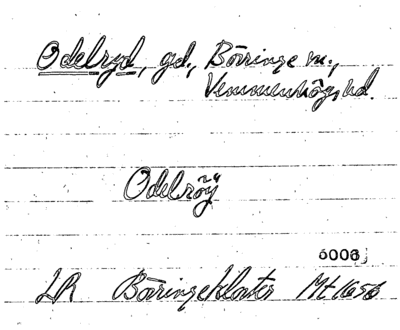 Odelryd, gd., Börringe sn.,
Vemmenhögs hd.
Odelröÿ
6006
LR Börringekloster Mt 1656